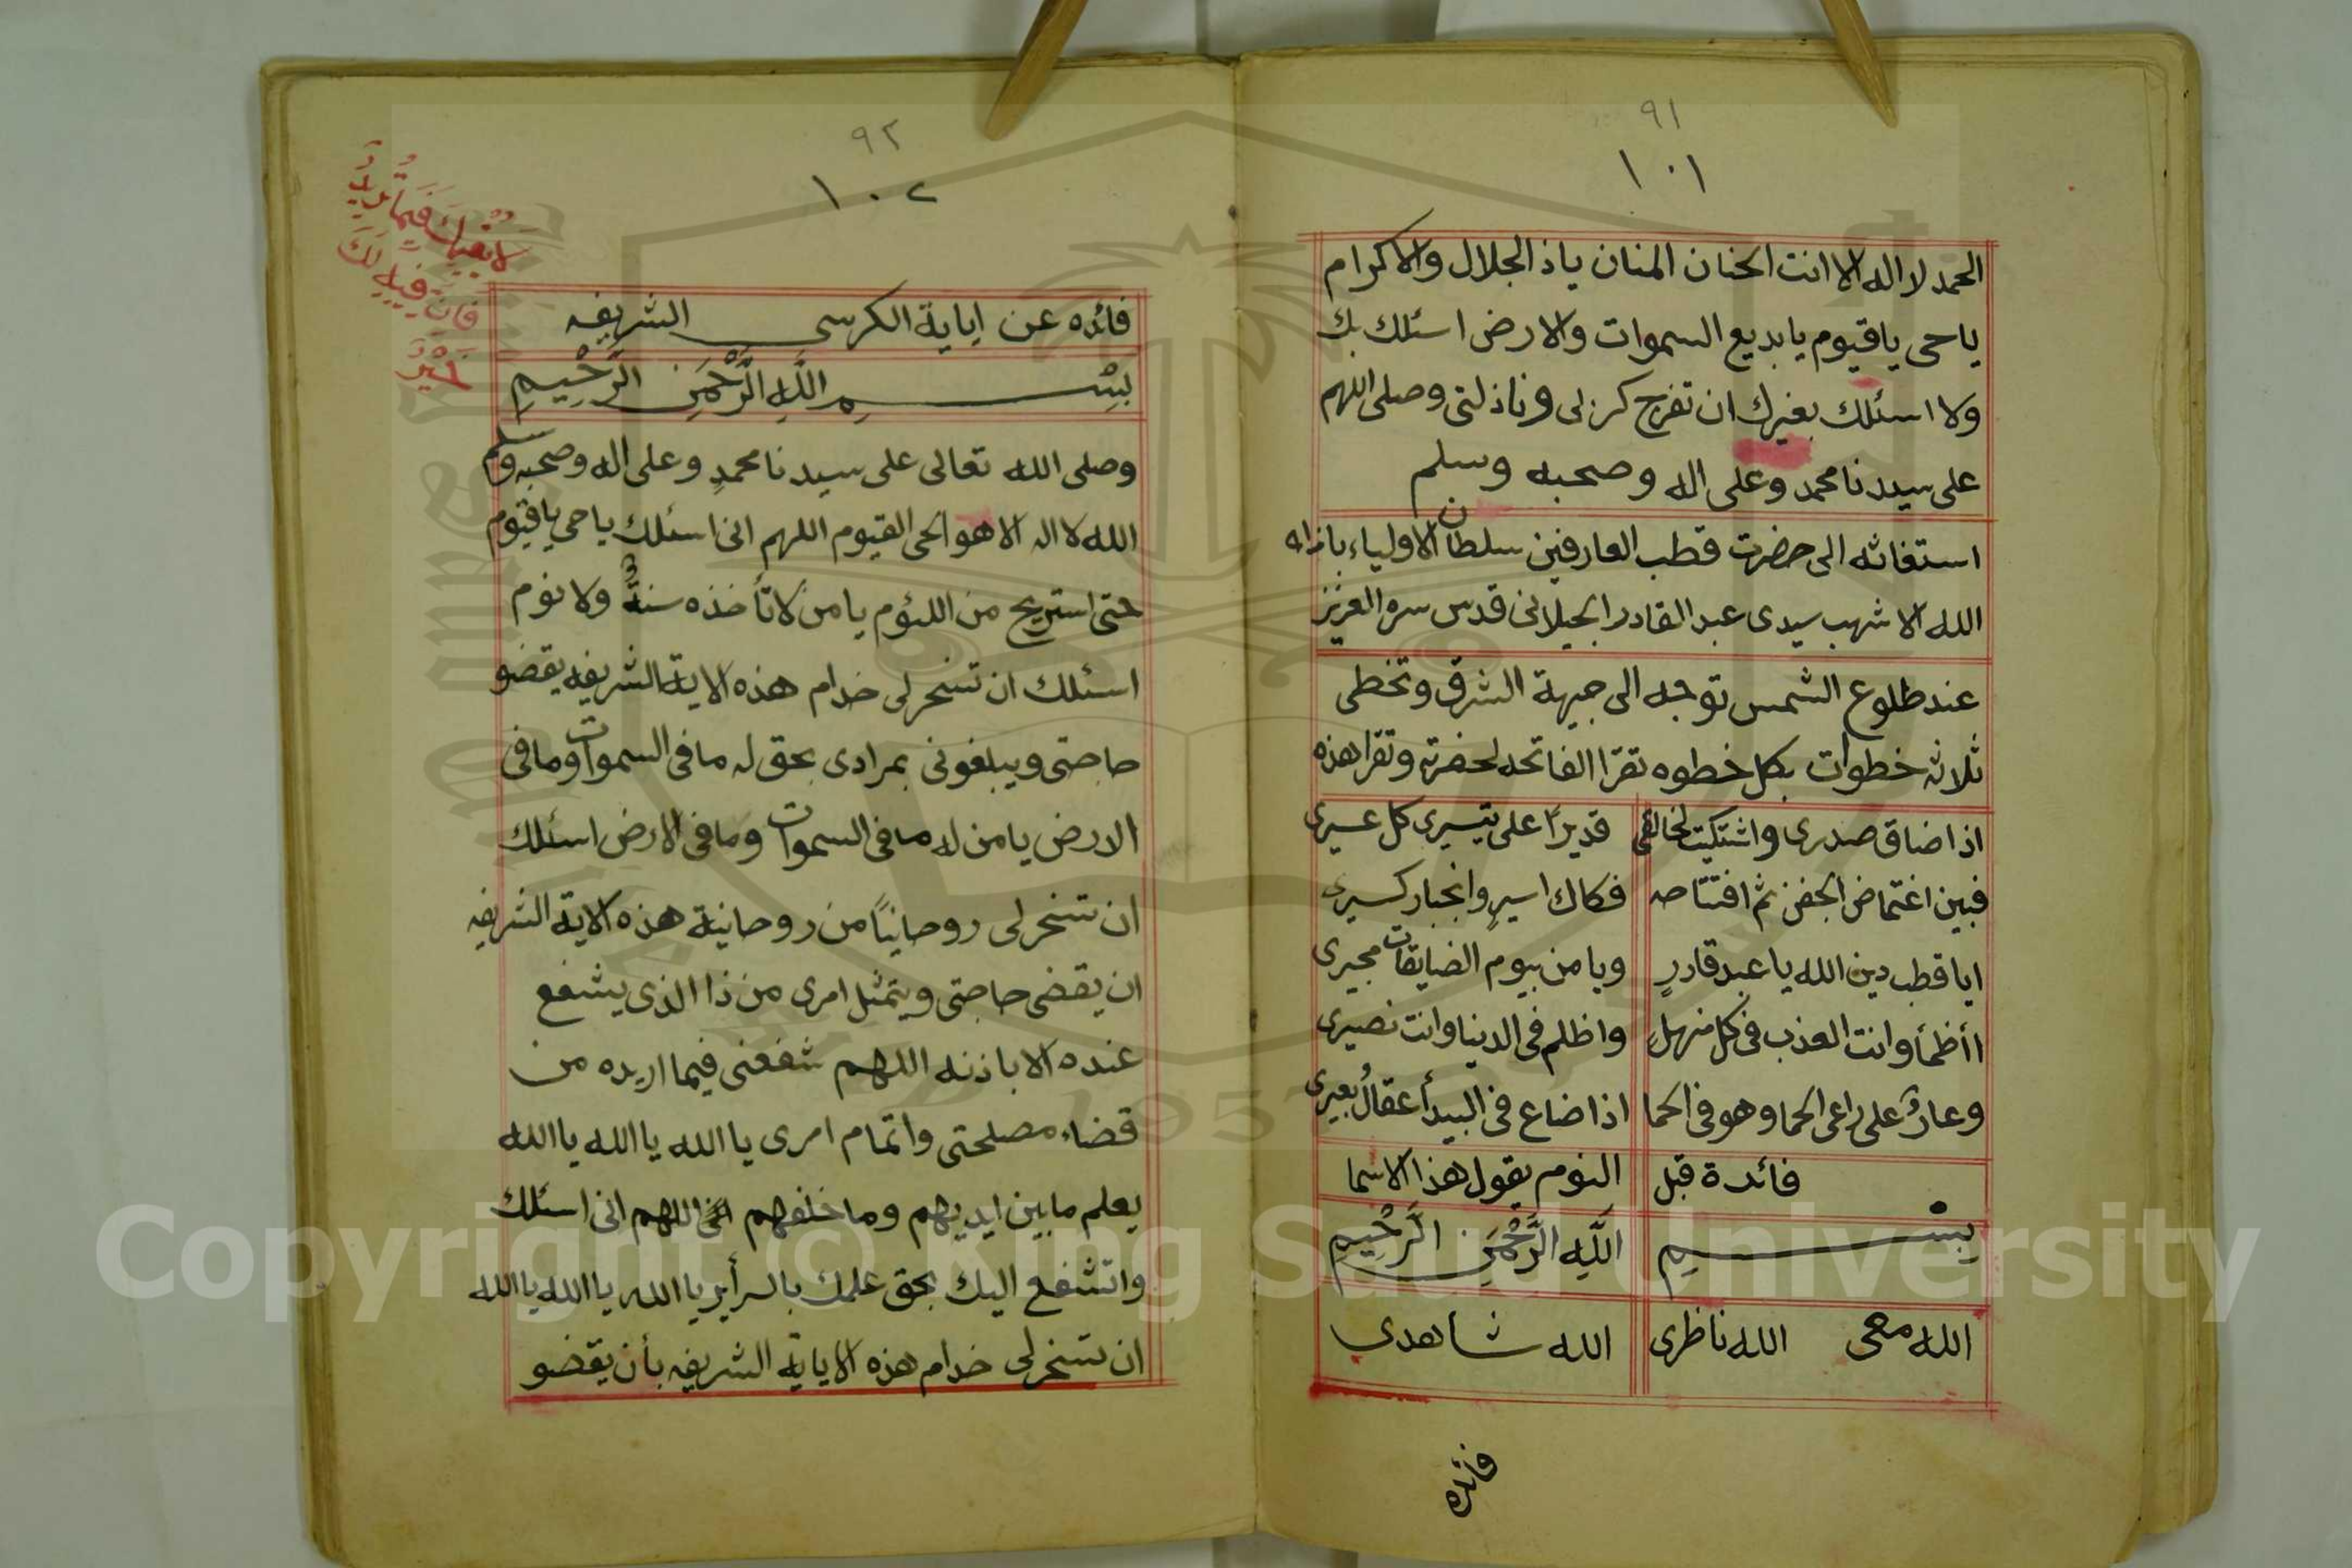 ٩١
١٠١
الحمد لا اله الا انت الحنان المنان ياذالجلال والاكرام
ياحى ياقيوم يابديع السموات والارض اسئلك بك
ولا اسئلك بغيرك ان تفرج كربى ونازلتى وصلى اللهم
على سيدنا محمد وعلى اله وصحبه وسلم
استغاثه الى حضرت قطب العارفين سلطان الاولياء باز
الله الاشهب سيدى عبد القادر الجيلانى قدس سره العزيز
عند طلوع الشمس توجه الى جيهة الشرق وتخطى
ثلاثه خطوات بكل خطوه تقرا الفاتحه لحضرته وتقرا هذه
اذا ضاق صدرى واشتكيت لخالقى قديرًا على تيسيرى كل عسيرى
فبين اغتماض الجفن ثم افتتاحه فكاك اسيرٍ وانجبار كسيرى
ايا قطب دين الله يا عبد قادرٍ ويا من بيوم الضايقات مجيرى
اأظمأ وانت العذب فى كل منهلٍ واظلم فى الدنيا وانت نصيرى
وعارٌ على راعى الحما وهو فى الحما اذا ضاع فى البيدأ عقالُ بعيرى
فائدة قبل النوم يقول هذا الاسما
بِسْمِ اللَّهِ الرَّحْمَنِ الرَّحِيمِ
الله معى الله ناظرى الله شاهدى
فائده
٩٢
١٠٢
فِيمَا تُرِيدُ
فَإِنَّ فِيهِ لَكَ
خَيْرٌ
فائده عن اياية الكرسى الشريفه
بِسْمِ اللَّهِ الرَّحْمَنِ الرَّحِيمِ
وصلى الله تعالى على سيدنا محمدٍ وعلى اله وصحبه وسلم
الله لا اله الا هو الحى القيوم اللهم انى اسئلك ياحى ياقيوم
حتى استريح من اللئوم يا من لا تأخذه سنةٌ ولا نوم
اسئلك ان تسخر لى خدام هذه الاية الشريفه يقضو
حاجتى ويبلغونى بمرادى بحق له ما فى السموات وما فى
الارض يا من له ما فى السموات وما فى الارض اسئلك
ان تسخر لى روحانيًا من روحانية هذه الاية الشريفه
ان يقضى حاجتى ويتمثل امرى من ذا الذى يشفع
عنده الا باذنه اللهم شفعنى فيما اريده من
قضاء مصلحتى واتمام امرى يا الله يا الله يا الله
يعلم ما بين ايديهم وما خلفهم اللهم انى اسئلك
واتشفع اليك بحق علمك بالسرأير يا الله يا الله يا الله
ان تسخر لى خدام هذه الاياية الشريفه بأن يقضو
Copyright © King Saud University